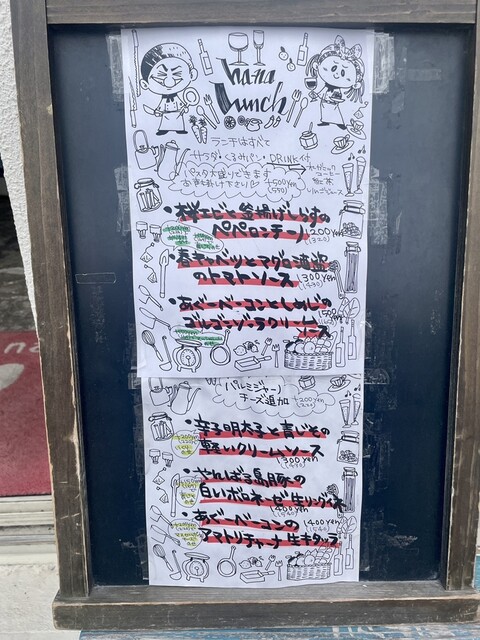 hana
Lunch
ランチはすべて
サラダ・くるみパン・DRINK付
パスタ大盛りできます
お声掛け下さい
+500yen
(550)
オーガニック
コーヒー
紅茶
りんごジュース
・桜エビと釜揚げしらすの
ペペロンチーノ
1200yen
(1320)
・春キャベツとマグロ酒盗
のトマトソース
1300yen
(1430)
・あぐーベーコンとしめじの
ゴルゴンゾーラクリーム
ソース
パルミジャーノ
チーズ追加
+200yen
(220)
・辛子明太子と青じその
軽いクリームソース
1300yen
(1430)
・やんばる島豚の
白いボロネーゼ 生リングイネ
1400yen
(1540)
・あぐーベーコンの
アマトリチャーナ 生キタッラ
1400yen
(1540)